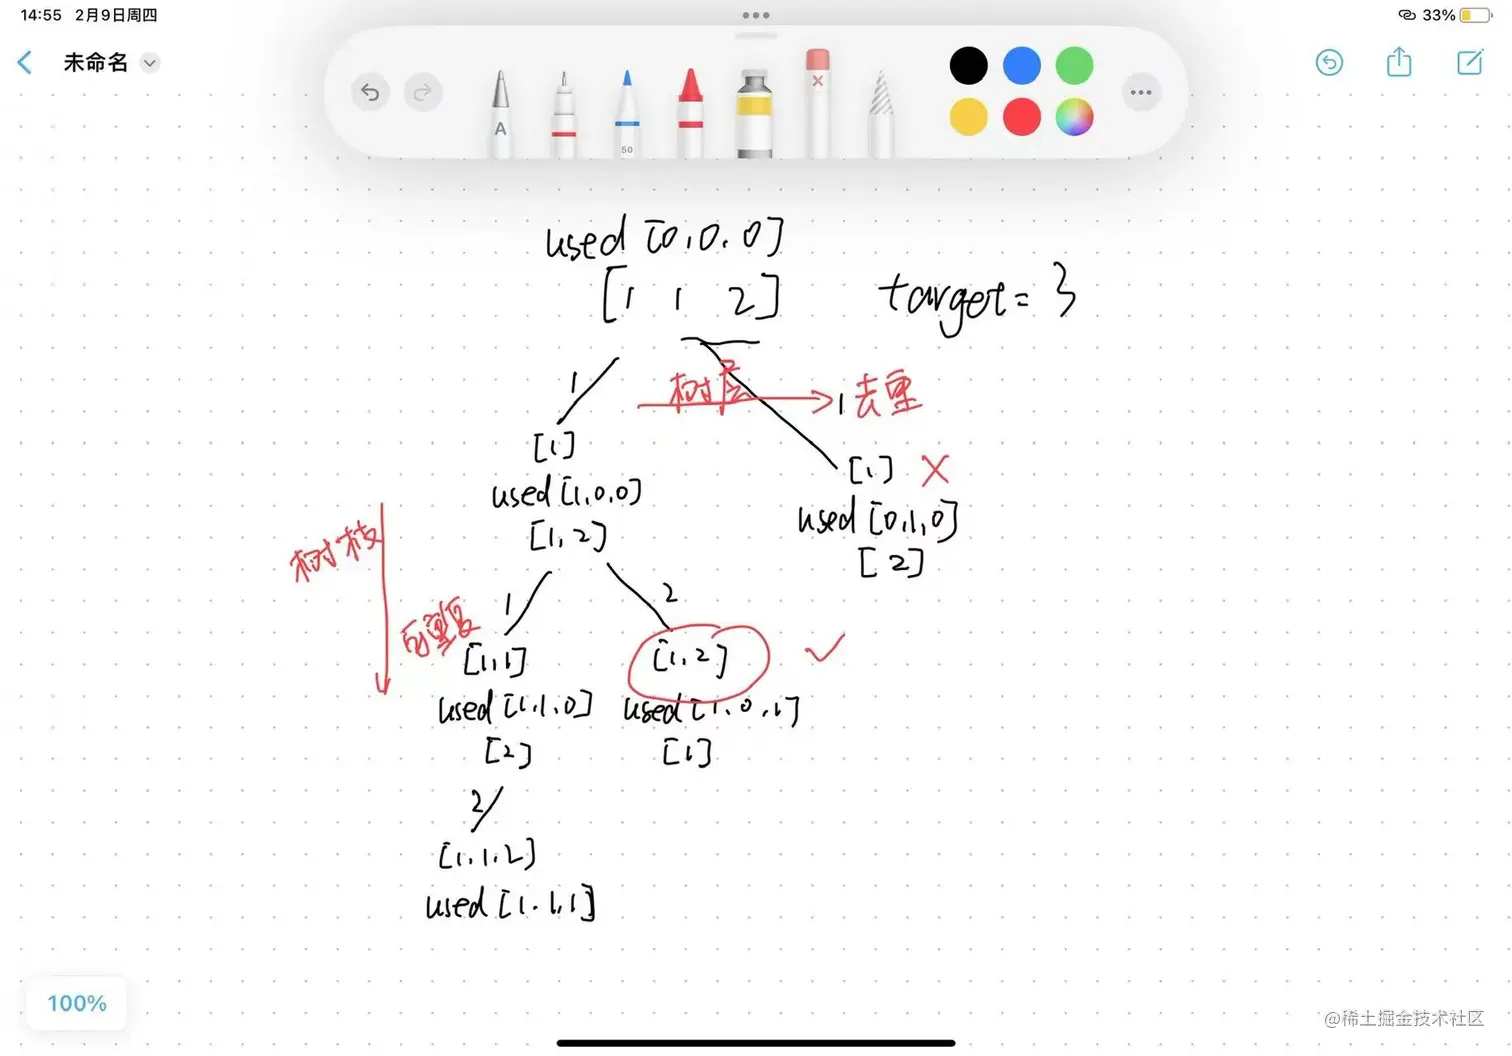 14:55 2月9日周四
33%
未命名
A
50
used [0,0,0]
[1 1 2]
target = 3
1
树层
1 去重
[1]
used [1,0,0]
[1,2]
[1] X
used [0,1,0]
[2]
树枝
可重复
1
2
[1,1]
used [1,1,0]
[2]
[1,2]
used [1,0,1]
[1]
2
[1,1,2]
used [1,1,1]
100%
@稀土掘金技术社区